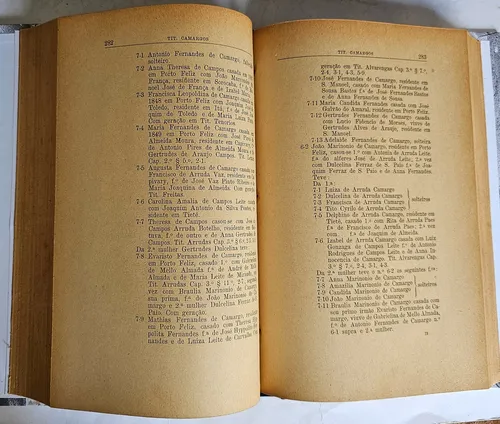 282 TIT. CAMARGOS
7-1 Antonio Fernandes de Camargo,
solteiro
7-2 Anna Thereza de Campos casada em
em Porto Feliz com João
França, residente em Sorocaba,
noel José de França e de Izabel
7-3 Francisca Leopoldina de Camargo,
1848 em Porto Feliz com Joaquim
Toledo, residente em Itú; f.º de
quim de Toledo e de Maria
Com geração em Tit. Tenorios.
7-4 Maria Fernandes de Camargo
1849 em Porto Feliz com
Almeida Moura, residente em Campinas,
de Antonio Pires de Almeida Moura
Gertrudes de Araujo Campos. Tit.
Cap. 2.º § 5.º, 2-1.
7-5 Augusta Fernandes de Camargo
Francisco de Arruda Vaz, residente
pivary, f.º de José Vaz Pinto Ribeiro
Maria Joaquina de Almeida.
Tit. Freitas
7-6 Carolina Amalia de Campos Leite
com Joaquim Antonio da Silva
sidente em Tieté.
7-7 Thereza de Campos casou-se com José
Campos Arruda Botelho, residente
tava, 1.º de outro e de Anna Gertrudes
Campos. Tit. Arrudas Cap. 3.º §
Da 2.ª mulher Gertrudes Dulcelina teve:
7-8 Evaristo Fernandes de Camargo, residente
em Porto Feliz, casado 1.º com
de Mello Almada f.ª de André de Mello
Almada e de Maria Leite de
Tit. Arrudas Cap. 3.º § 11.º, 2-7,
vez com Brasilia Marinonio de
sua prima, f.ª de João Marinonio
margo e 2.ª mulher Dulcelina Ferraz
Paio. Com geração.
7-9 Mathias Fernandes de Camargo,
em Porto Feliz, casado com Thereza
pitelina Fernandes f.ª de José
nandes e de Luiza Leite de Carvalho
TIT. CAMARGOS 283
geração em Tit. Alvarengas Cap. 5.º § 1.º,
2-4, 3-1, 4-3, 5-9
7-10 José Fernandes de Camargo, residente em
S. Manoel, casado com Maria Fernandes de
Souza Bastos f.ª de José Fernandes Bastos
e de Anna Fernandes de Souza
7-11 Maria Candida Fernandes casada com José
Galvão do Amaral, residente em Porto Feliz.
7-12 Gertrudes Fernandes de Camargo casada com
Lucio Fidencio de Moraes, viuvo de
Gertrudes Alves de Araujo, residente em
S. Manoel
7-13 Adelaide Fernandes de Camargo, solteira
6-2 João Marinonio de Camargo, residente em Porto
Feliz, casou-se 1.º com Antonia de Arruda Leite
f.ª do alferes José de Arruda Leite, 2.ª vez com
Dulcelina Ferraz de S. Paio f.ª de Joaquim
Ferraz de S. Paio e de Anna Fernandes
Teve:
Da 1.ª
7-1 Luiza de Arruda Camargo
7-2 Dulcelina de Arruda Camargo
7-3 Francisca de Arruda Camargo
7-4 Tito Cyrillo de Arruda Camargo
solteiros
7-5 Delphino de Arruda Camargo, residente em
Tieté, casado 1.º com Rita de Arruda Paes
f.ª de Francisco de Arruda Paes; 2.ª vez
com f.ª de Joaquim de Almeida.
7-6 Izabel de Arruda Camargo casada com Luiz
Gonzaga de Campos Leite f.º de Antonio
Rodrigues de Campos Leite e de Anna In-
nocencia de Camargo. Tit. Alvarengas Cap.
3.º § 7.º, 2-4, 3-1, 4-3.
Da 2.ª mulher teve o n.º 6-2 os seguintes f.ºs:
7-7 Anna Marinonio de Camargo
7-8 Amazilia Marinonio de Camargo
7-9 Candida Marinonio de Camargo
7-10 João Marinonio de Camargo
solteiros
7-11 Brasilia Marinonio de Camargo casada com
seu primo irmão Evaristo Fernandes de Ca-
margo, viuvo de Gabrielina de Mello Almada,
f.º de Antonio Fernandes de Camargo n.º
6-1 supra e 2.ª mulher.